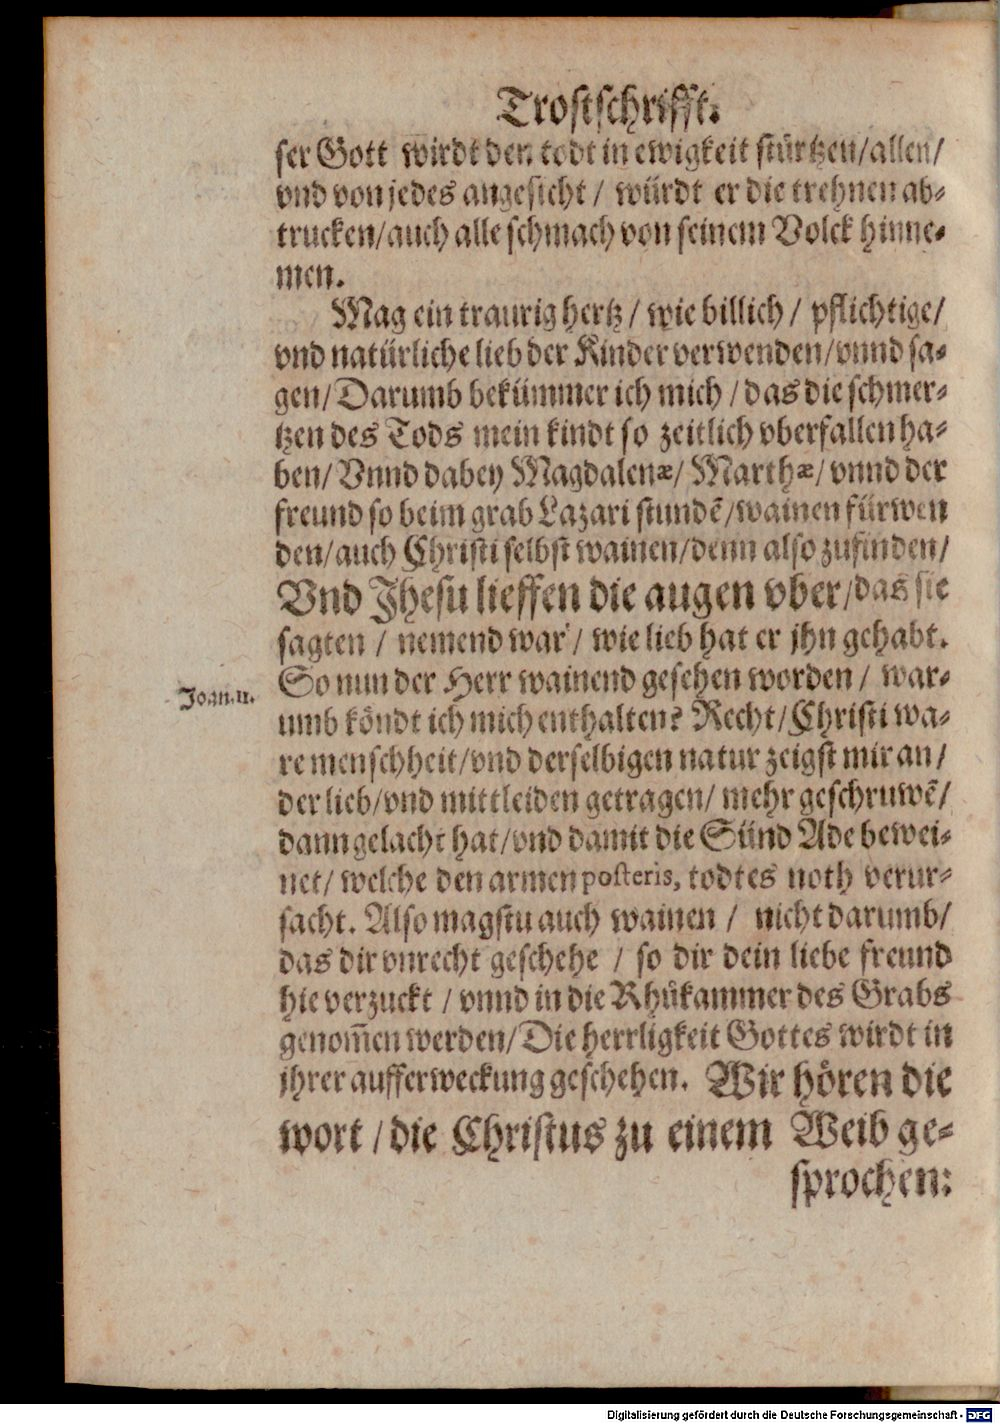 Trostschrifft.
ser Gott wirdt den todt in ewigkeit stürtzen/allen/
vnd von jedes angesicht / würdt er die trehnen ab-
trucken/auch alle schmach von seinem Volck hinne-
men.
Mag ein traurig hertz / wie billich / pflichtige/
vnd natürliche lieb der Kinder verwenden/vnnd sa-
gen/Darumb bekümmer ich mich / das die schmer-
tzen des Tods mein kindt so zeitlich vberfallen ha-
ben/Vnnd dabey Magdalenæ/ Marthæ/ vnnd der
freund so beim grab Lazari stundē/wainen fürwen
den/auch Christi selbst wainen/denn also zufinden/
Vnd Jhesu lieffen die augen vber/das sie
sagten / nemend war / wie lieb hat er jhn gehabt.
Joan.11.
So nun der Herr wainend gesehen worden / war-
umb köndt ich mich enthalten? Recht/Christi wa-
re menschheit/vnd derselbigen natur zeigst mir an/
der lieb/vnd mittleiden getragen/ mehr geschruwē/
dann gelacht hat/vnd damit die Sünd Ade bewei-
net/ welche den armen posteris, todtes noth verur-
sacht. Also magstu auch wainen / nicht darumb/
das dir vnrecht geschehe / so dir dein liebe freund
hie verzuckt / vnnd in die Rhůkammer des Grabs
genom̄en werden/Die herrligkeit Gottes wirdt in
jhrer aufferweckung geschehen. Wir hören die
wort / die Christus zu einem Weib ge-
sprochen:
Digitalisierung gefördert durch die Deutsche Forschungsgemeinschaft - DFG